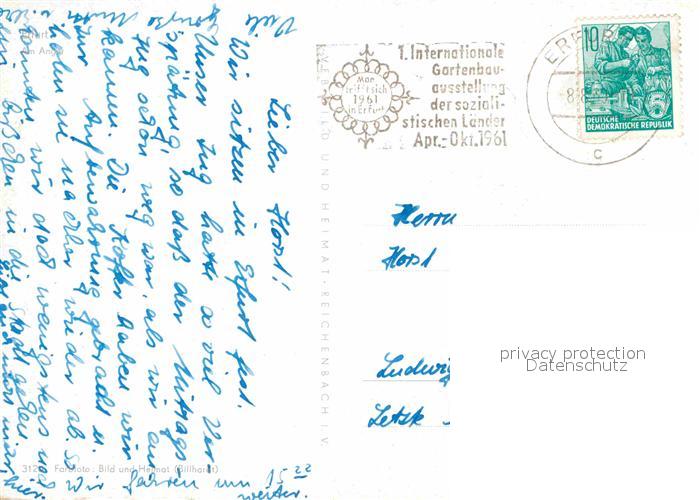 Erfurt
am Anger
Lieber Horst!
Wir sitzen in Erfurt fest.
Unser Zug hatte so viel Ver-
spätung, so daß der Mittags
zug schon weg war, als wir an
kamen. Die Koffer haben wir
zur Aufbewahrung gebracht u.
holen sie nachher wieder ab. So
können wir doch wenigstens noch
bißchen in die Stadt gehen
Wir fahren um 15 22
weiter.
Viele
312 Farbfoto: Bild und Heimat (Billhardt)
BILD UND HEIMAT · REICHENBACH I. V.
Man
trifft sich
1961
in Erfurt
1. Internationale
Gartenbau-
ausstellung
der soziali-
stischen Länder
Apr.-Okt. 1961
ERFUR
C
10
DEUTSCHE
DEMOKRATISCHE REPUBLIK
Herrn
Horst
Ludwig
Letsk
privacy protection
Datenschutz